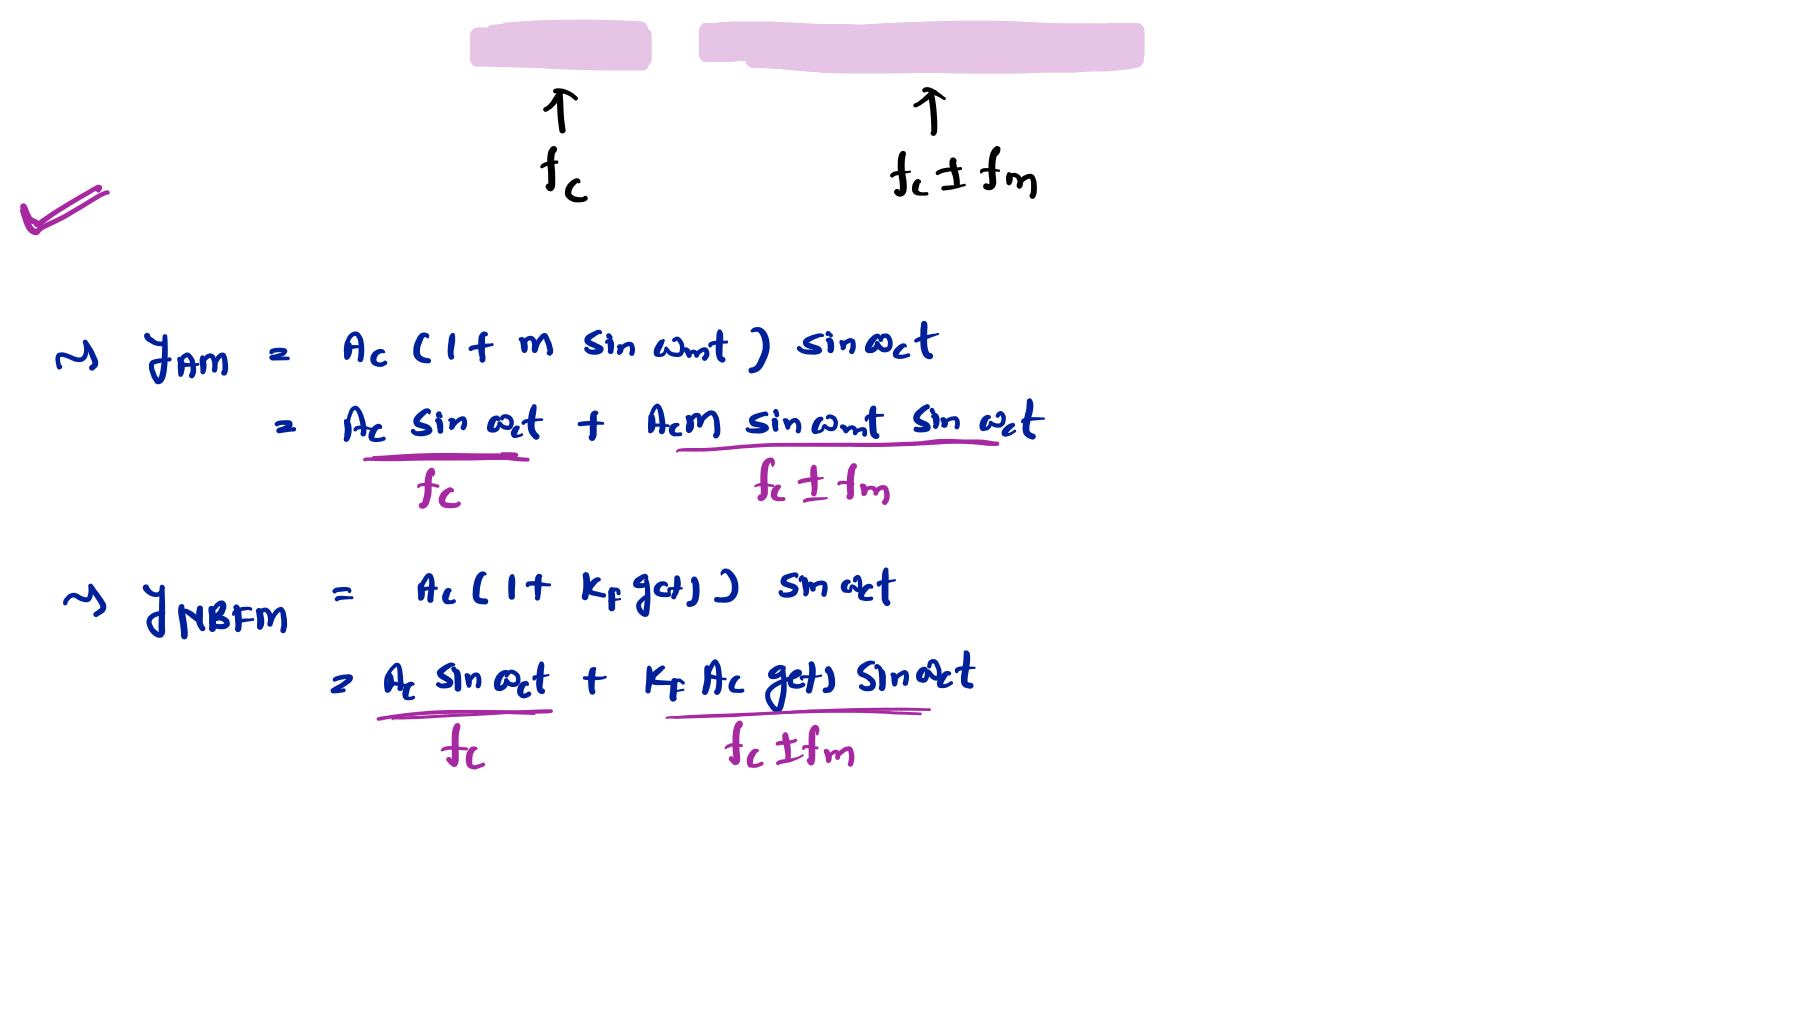 ↑ ↑
fc fc ± fm
~> yAM = Ac (1 + m sin ωmt) sin ωct
= Ac sin ωct + Acm sin ωmt sin ωct
fc fc ± fm
~> yNBFM = Ac (1 + Kf g(t)) sin ωct
= Ac sin ωct + Kf Ac g(t) sin ωct
fc fc ± fm